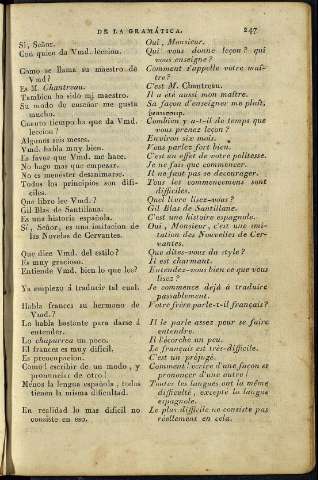 DE LA GRAMÁTICA. 247
Sí, Señor.
Con quien da Vmd. leccion.
Como se llama su maestro de
Vmd.?
Es M. Chantreau.
Tambien ha sido mi maestro.
Su modo de enseñar me gusta
mucho.
Cuanto tiempo ha que da Vmd.
leccion?
Algunos seis meses.
Vmd. habla muy bien.
Es favor que Vmd. me hace.
No hago mas que empezar.
No es menester desanimarse.
Todos los principios son difí-
ciles.
Que libro lee Vmd.?
Gil Blas de Santillana.
Es una historia española.
Sí, Señor, es una imitacion de
las Novelas de Cervantes.
Que dice Vmd. del estilo?
Es muy gracioso.
Entiende Vmd. bien lo que lee?
Ya empiezo á traducir tal cual.
Habla frances su hermano de
Vmd.?
Lo habla bastante para darse á
entender.
Lo chapurrea un poco.
El frances es muy difícil.
Es preocupacion.
Como! escribir de un modo, y
pronunciar de otro!
Ménos la lengua española, todas
tienen la misma dificultad.
En realidad lo mas difícil no
consiste en eso.
Oui, Monsieur.
Qui vous donne leçon? qui
vous enseigne?
Comment s'appelle votre maî-
tre?
C'est M. Chantreau.
Il a été aussi mon maître.
Sa façon d'enseigner me plaît,
beaucoup.
Combien y a-t-il de temps que
vous prenez leçon?
Environ six mois.
Vous parlez fort bien.
C'est un effet de votre politesse.
Je ne fais que commencer.
Il ne faut pas se décourager.
Tous les commencemens sont
difficiles.
Quel livre lisez-vous?
Gil Blas de Santillane.
C'est une histoire espagnole.
Oui, Monsieur, c'est une imi-
tation des Nouvelles de Cer-
vantes.
Que dites-vous du style?
Il est charmant.
Entendez-vous bien ce que vous
lisez?
Je commence déjà à traduire
passablement.
Votre frère parle-t-il français?
Il le parle assez pour se faire
entendre.
Il l'écorche un peu.
Le français est très-difficile.
C'est un préjugé.
Comment! écrire d'une façon et
prononcer d'une autre!
Toutes les langues ont la même
difficulté, excepté la langue
espagnole.
Le plus difficile ne consiste pas
réellement en cela.